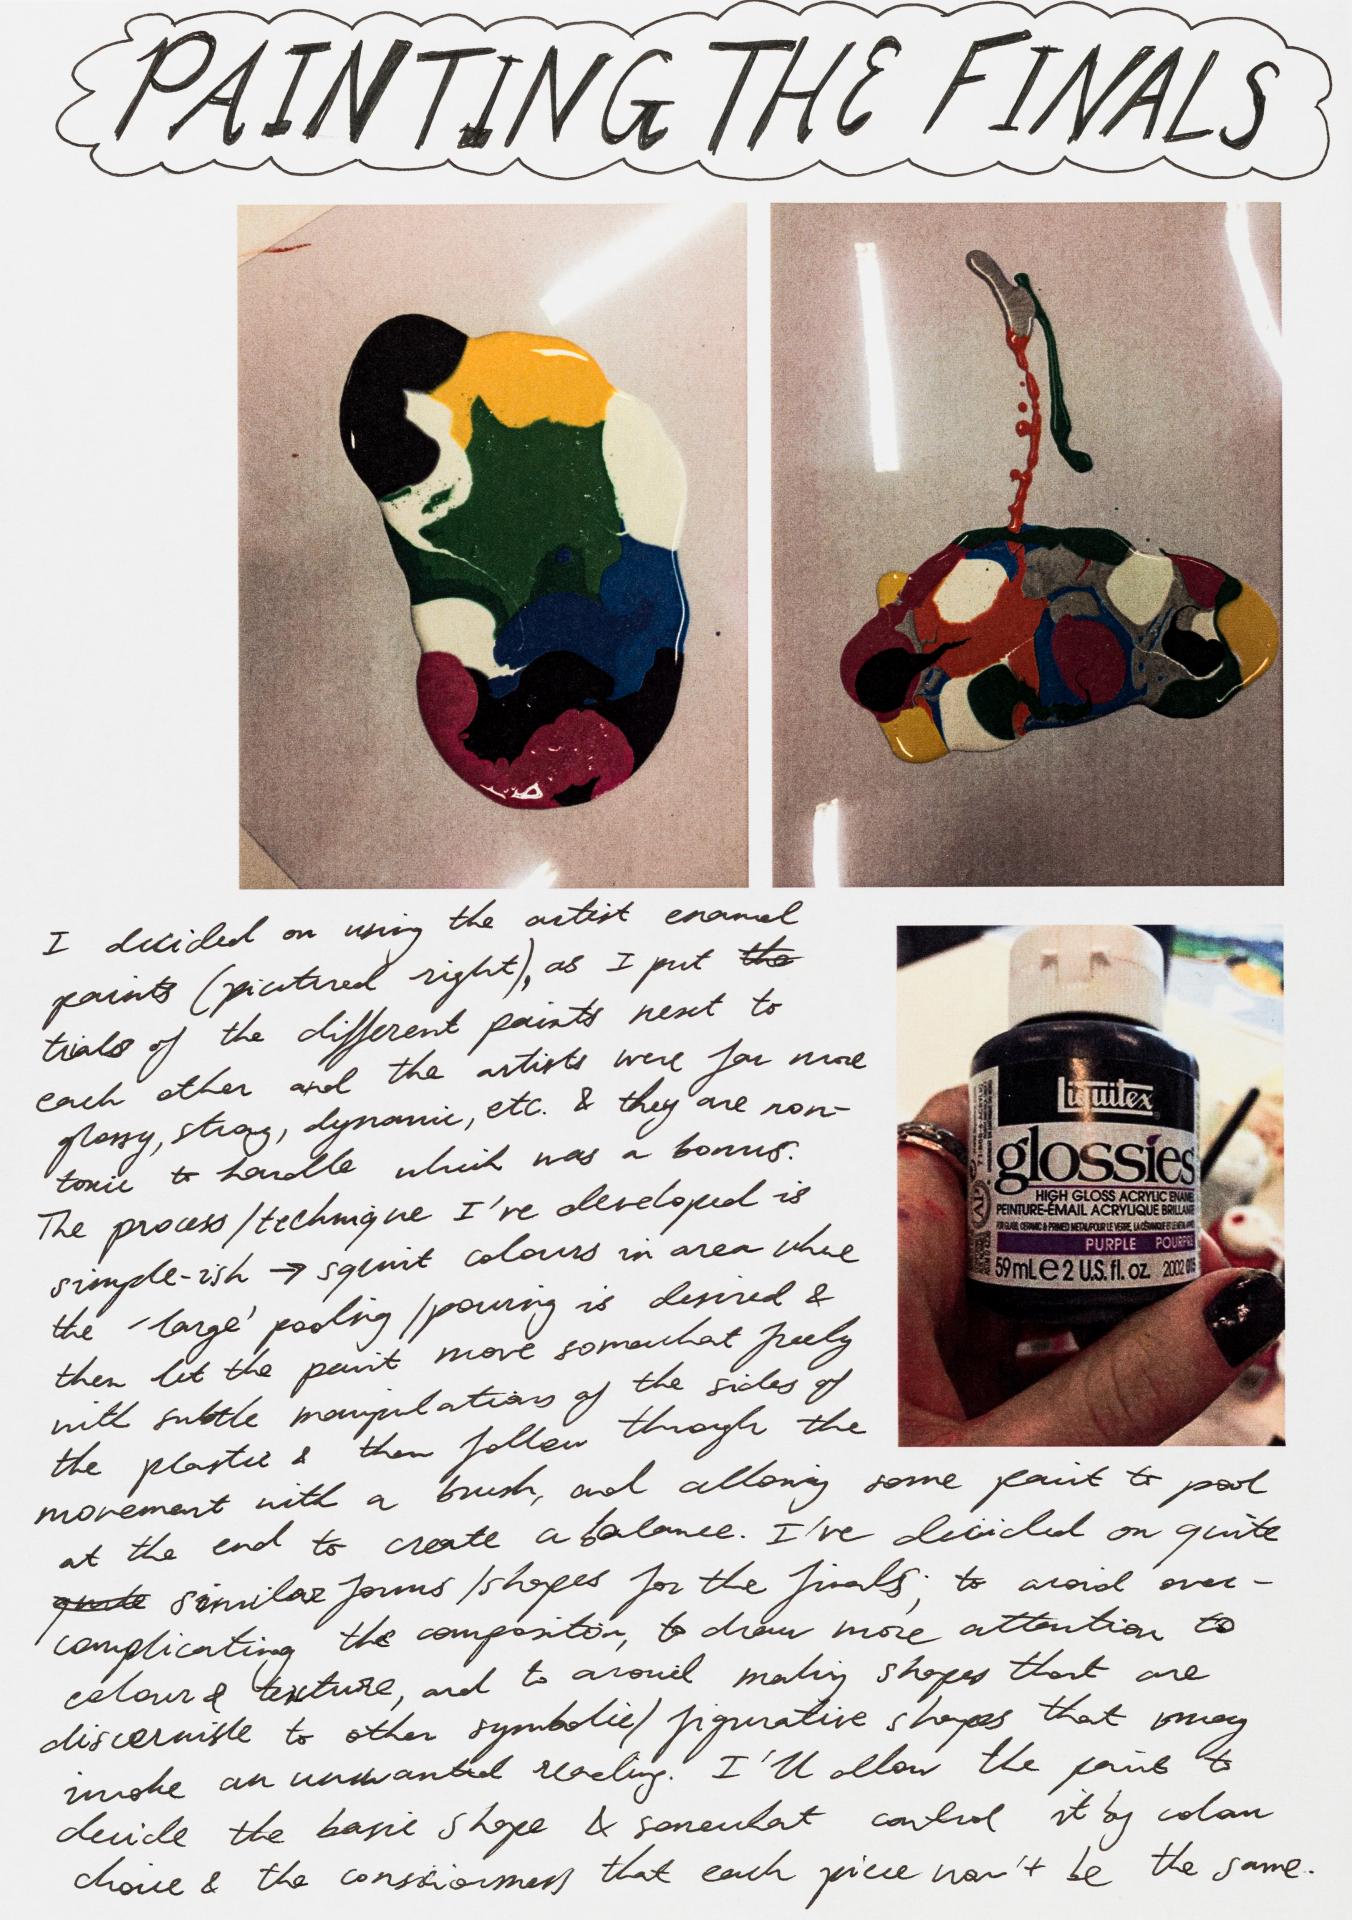 PAINTING THE FINALS
I decided on using the artist enamel
paints (pictured right), as I put the
trials of the different paints next to
each other and the artists were far more
glossy, strong, dynamic, etc. & they are non-
toxic to handle which was a bonus.
The process/technique I've developed is
simple-ish → squirt colours in area where
the 'large' pooling/pouring is desired &
then let the paint move somewhat freely
with subtle manipulations of the sides of
the plastic & then follow through the
movement with a brush, and allowing some paint to pool
at the end to create a balance. I've decided on quite
quite similar forms/shapes for the finals; to avoid over-
complicating the composition, to draw more attention to
colour & texture, and to avoid making shapes that are
discernible to other symbolic/figurative shapes that may
invoke an unwanted reading. I'll allow the paint to
decide the basic shape & somewhat control it by colour
choice & the consciousness that each piece won't be the same.
Liquitex
glossies
HIGH GLOSS ACRYLIC ENAMEL
PEINTURE-ÉMAIL ACRYLIQUE BRILLANTE
FOR GLASS, CERAMIC & PRIMED METAL/POUR LE VERRE, LA CÉRAMIQUE ET LE MÉTAL
PURPLE POURPRE
59 mL e 2 U.S. fl. oz. 2002
AP